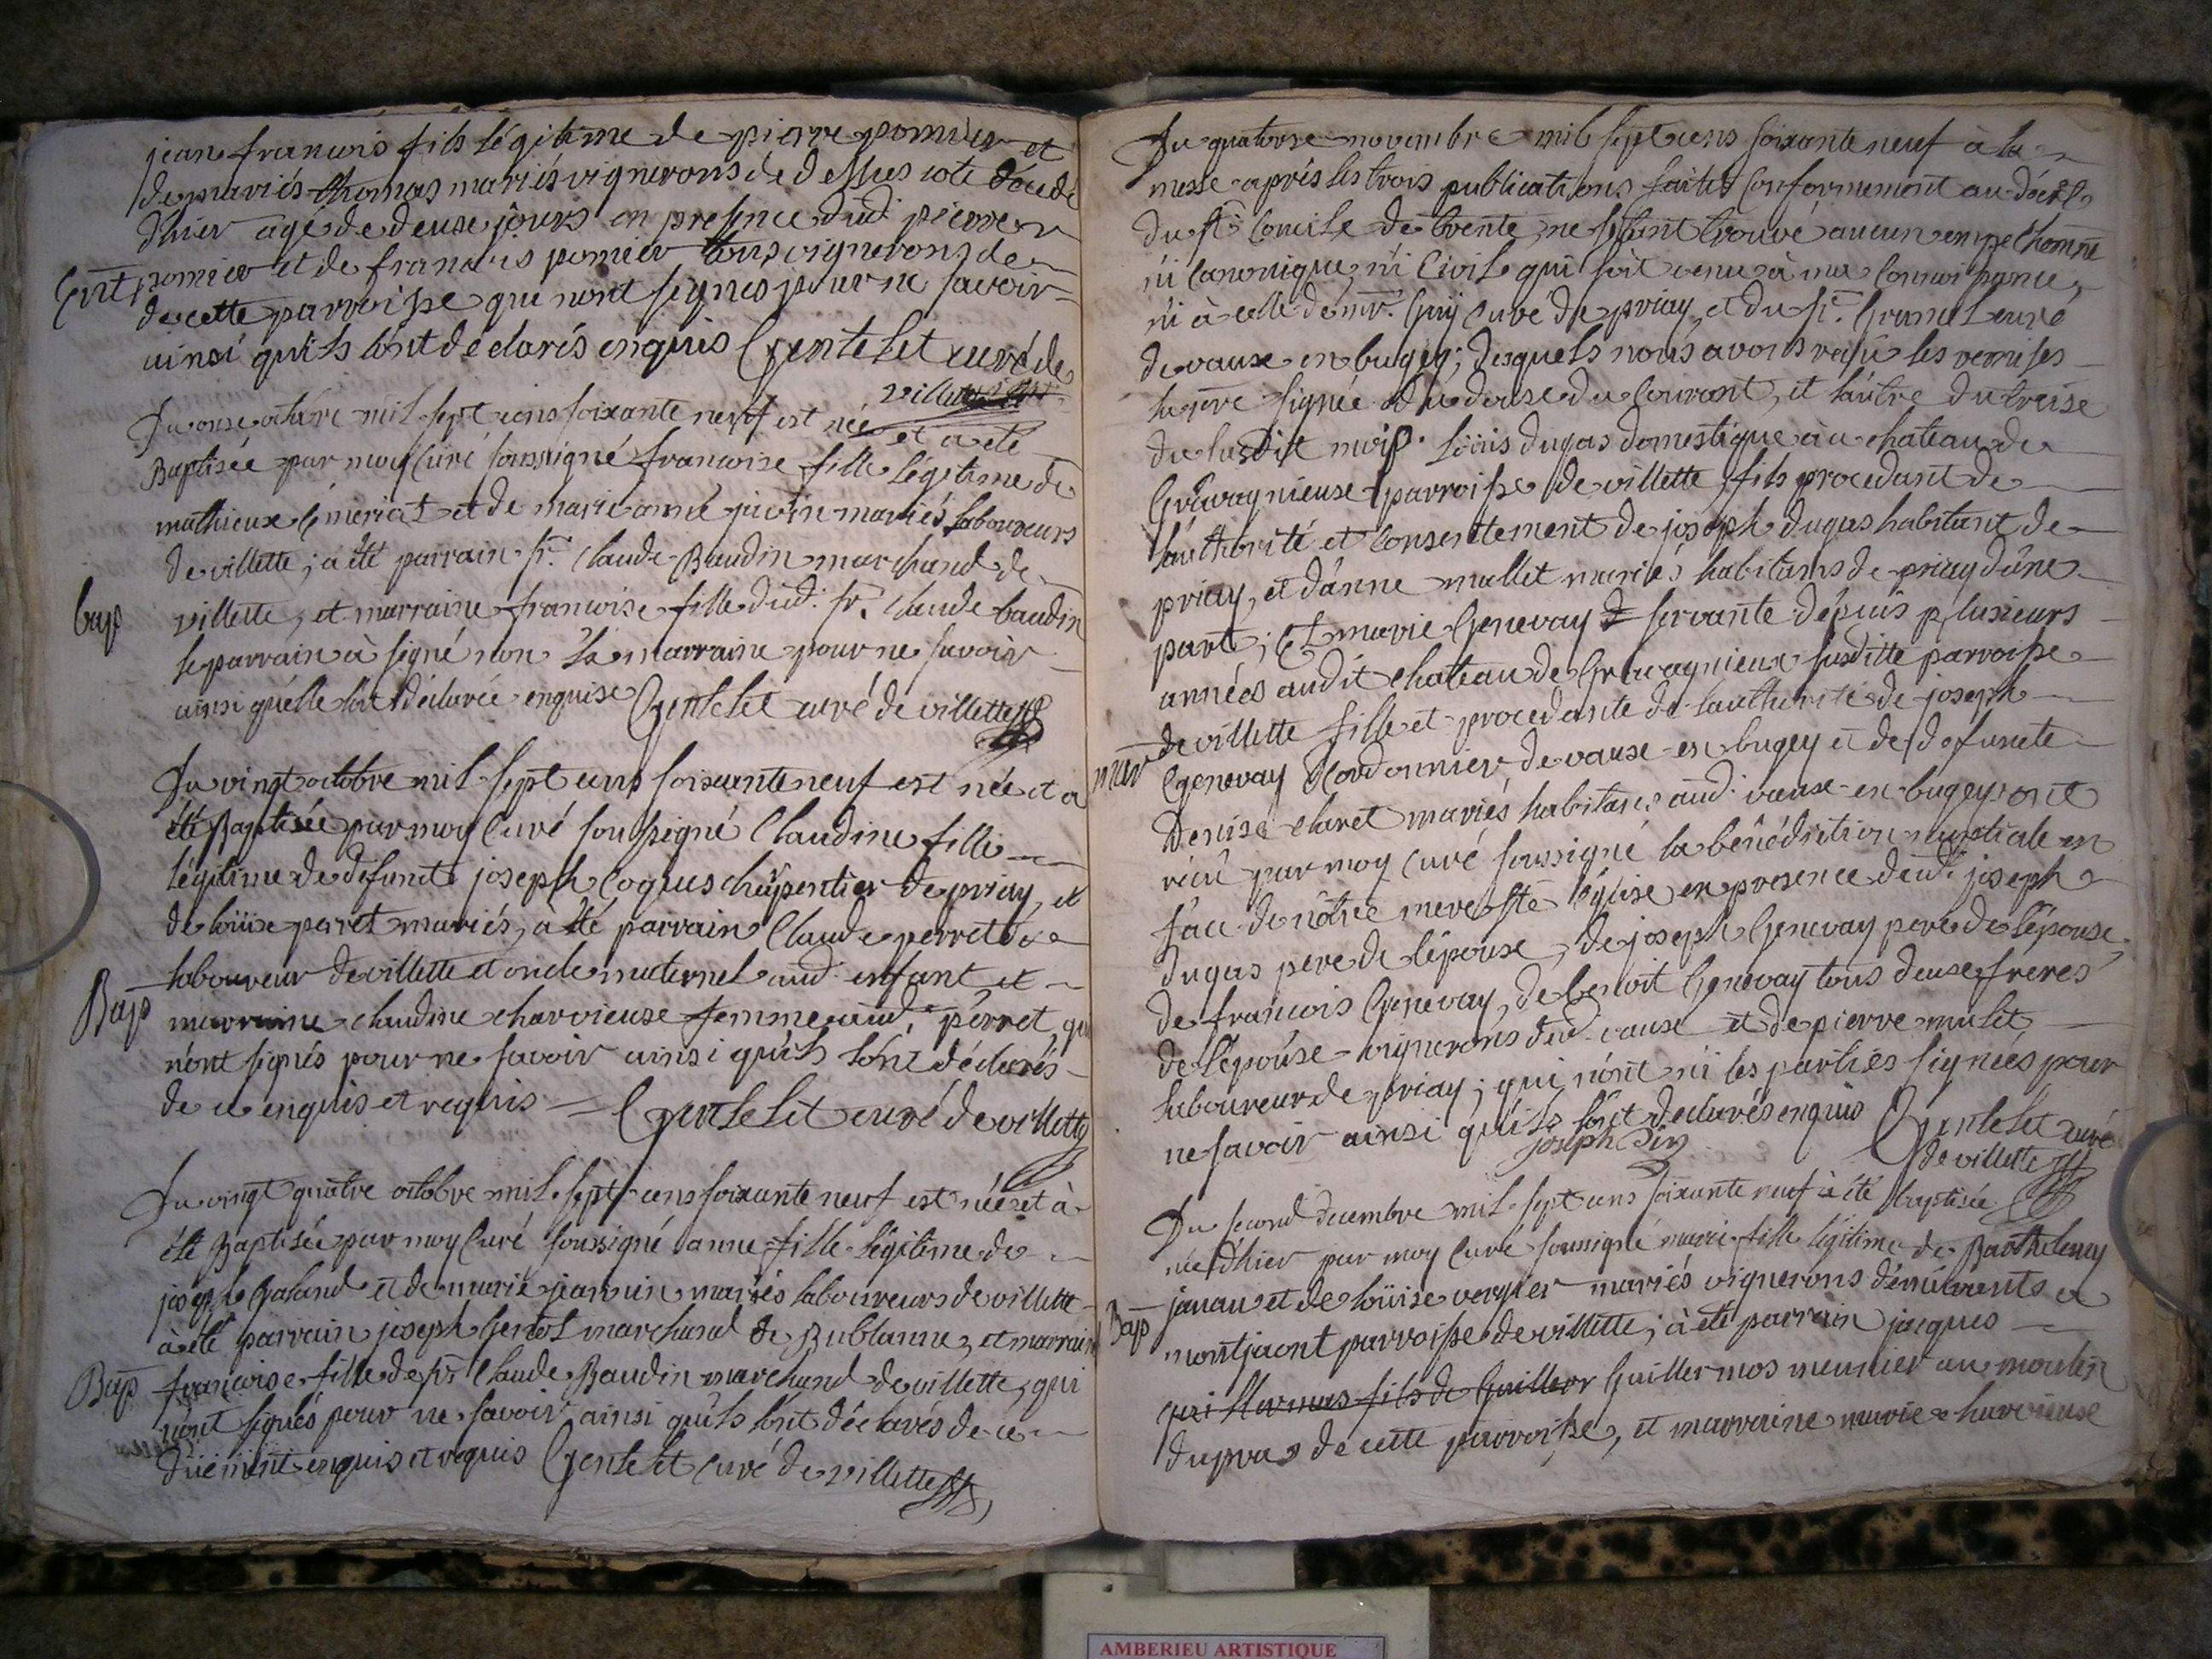 jean francois fils légitime de pierre pomier et
de mariés thomas mariés vignerons de dessus cote décédé
dhier agé de deuxe jours en presence dud. pierre
Ent
pomier et de francois pomier tous vignerons de
de cette parroisse qui nont signés pour ne savoir
ainsi quils lont déclarés enquis Gentelet curé de
villette
Du onse octobre mil sept cens soixante neuf est née et a eté
Baptisée par moy Curé soussigné francoise fille légitime de
mathieux émeriat et de marie anne mariés laboureurs
de villette ; a été parrain sr. Claude Baudin marchand de
bap
villette, et marraine francoise fille dud. sr. claude baudin
le parrain à signé non la marraine pour ne savoir
ainsi quelle la déclarée enquise Gentelet curé de villette
Du vingt octobre mil sept cens soixante neuf est née et a
été Baptisée par moy Curé soussigné Claudine fille
légitime de défunct joseph Coques chârpentier de priay, et
de loüise perret mariés, à été parrain Claude perret
laboureur de villette et oncle maternel aud. enfant et
Bap
marraine claudine charvieuse femme aud. perret, qui
n'ont signés pour ne savoir ainsi quils lont déclarés
de ce enquis et requis Gentelet curé de villette
Du vingt quatre octobre mil sept cens soixante neuf est née et à
été Baptisée par moy Curé soussigné anne fille légitime de
joseph Galand et de marie jeannin mariés laboureurs de villette
à été parrain joseph Genot marchand de Bublanne, et marraine
Bap
francoise fille de sr. Claude Baudin marchand de villette, qui
nont signés pour ne savoir ainsi quils lont déclarés de ce
düement enquis et requis Gentelet Curé de villette
Du quatorse novembre mil sept cens soixante neuf à la
messe aprés les trois publications faites Conformement au décrt
du st. Concile de trente, ne sétant trouvé aucun empechemne
ni Canonique, ni Civil qui soit venu à ma Connoissance,
ni à celle de mr. Guy Curé de priay, et du sr. Grumet curé
de vaux en bugey ; desquels nous avons reçû les remises
la 1ere signée du douse du Courant, et l'autre du treise
du susdit mois. Loüis dugas domestique au chateau de
Gravagnieuse parroisse de villette, fils procedant de
l'authorité et Consentement de joseph dugas habitant de
priay, et d'anne mallet mariés habitans de priay d'une
part ; Et marie Genevay servante depuis plusieurs
années audit chateau de Gravagnieux susditte parroisse
mar
de villette fille et procedante de lauthorité de joseph
Genevay Cordonnier de vause en bugey et de defuncte
Denise claret mariés habitans aud. vause en bugey ont
réçû par moy Curé soussigné la bénédiction nuptiale en
face de nôtre mere ste église en presence dud. joseph
dugas pere de lépouse, de joseph Genevay pere de lépouse,
de francois Genevay, de benoit Genevay tous deuse freres
de lépouse vignerons dud. vause et de pierre mulet
laboureur de priay ; qui n'ont ni les parties signées pour
ne savoir ainsi quils lont declarés enquis Gentelet curé
joseph
de villette
Du second decembre mil sept cens soixante neuf à été baptisée
née dhier par moy Curé soussigné marie fille légitime de Barthelemy
janau et de loüise vergier mariés vignerons démeurents a
Bap
montjaont parroisse de villette ; à été parrain jacques
guillermas fils de Guiller Guillermos meunier au moulin
du pras de cette parroisse, et marraine marie charvieuse
AMBERIEU ARTISTIQUE